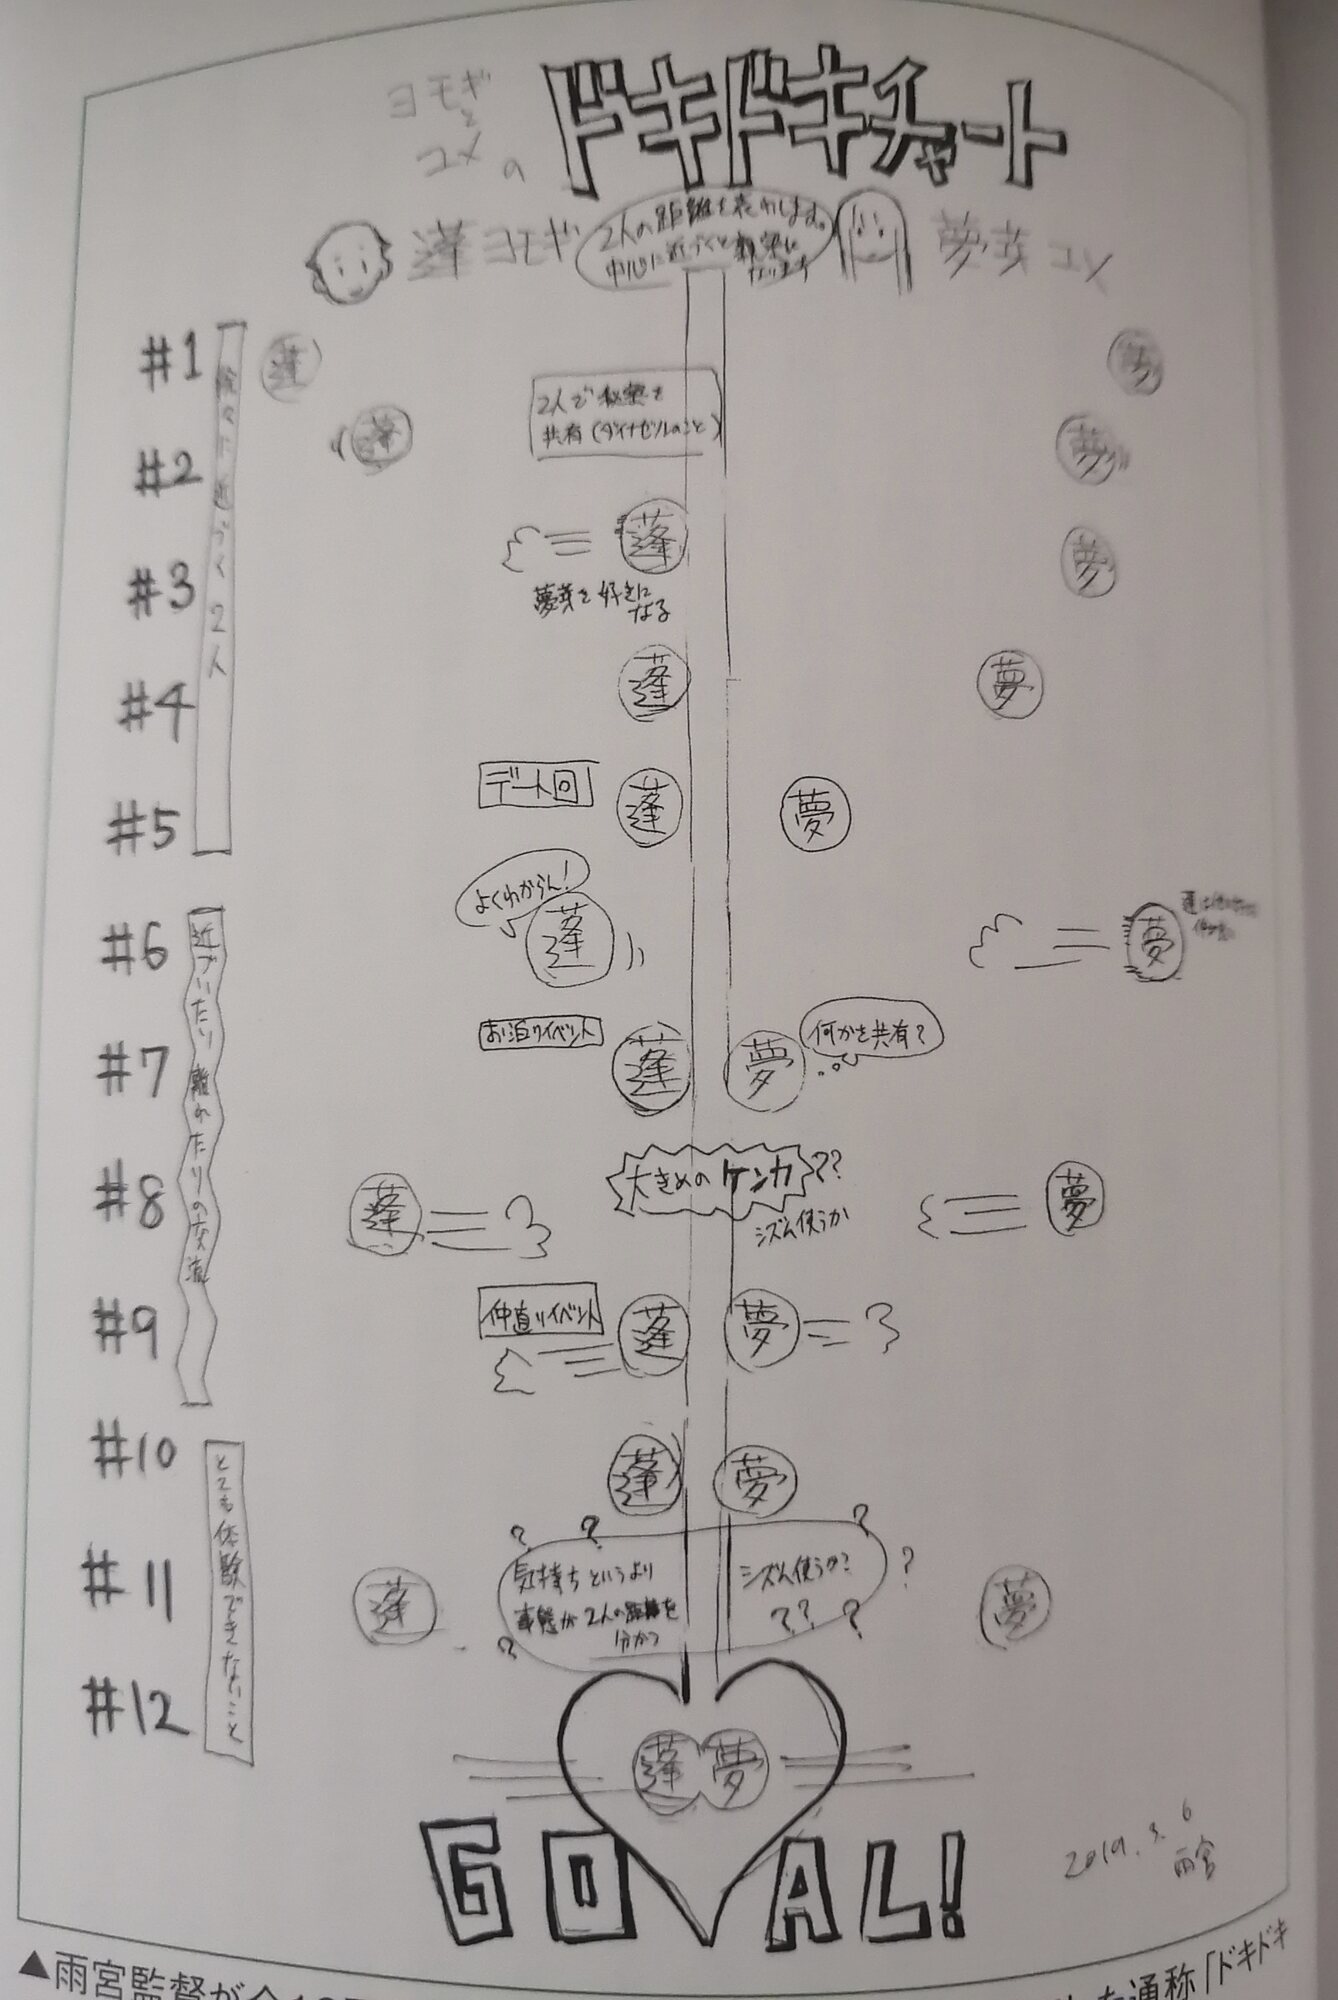 ヨモギ
と
ユメ の
ドキドキチャート
蓬ヨモギ
2人の距離を表わします。
中心に近づくと親密に
なります
夢芽ユメ
#1
#2
#3
#4
#5
#6
#7
#8
#9
#10
#11
#12
近づく2人
近づいたり離れたりの交流
とても体験できないこと
蓬
夢
2人で秘密を
共有(ダイナゼノンのこと)
蓬
夢
蓬
夢
夢芽を好きに
なる
蓬
夢
デート回
蓬
夢
よくわからん!
蓬
夢
お泊りイベント
蓬
夢
何かを共有?
大きめのケンカ??
シズム使うか
蓬
夢
仲直りイベント
蓬
夢
蓬
夢
? ? ? ? ?
気持ちというより
事態が2人の距離を
分かつ
シズム使うか?
?? ?
蓬
夢
蓬夢
GOAL!
2019.3.6
雨宮
▲雨宮監督が全12
た通称「ドキドキ